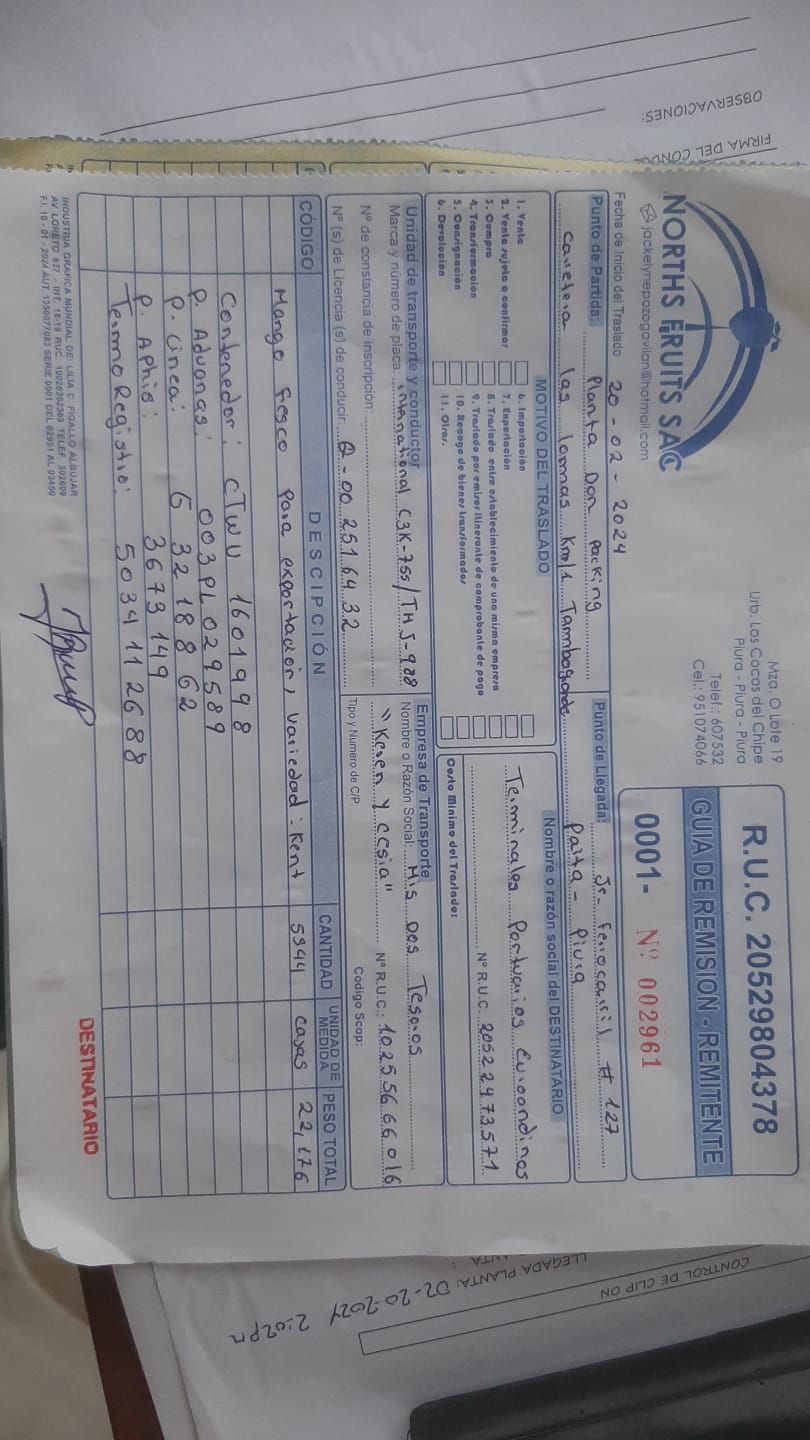 NORTHS FRUITS SAC
jackelynepozogavilan@hotmail.com
Mza. O Lote 19
Urb. Los Cocos del Chipe
Piura - Piura - Piura
Telef.: 607532
Cel.: 951074066
R.U.C. 20529804378
GUIA DE REMISION - REMITENTE
0001- Nº 002961
Fecha de Inicio del Traslado 20-02-2024
Punto de Partida: Planta Don Packing
Carretera las lomas Km 1.1 Tambogrande
Punto de Llegada: Jr- Ferrocarril # 127
Paita - Piura
MOTIVO DEL TRASLADO
1. Venta
2. Venta sujeta a confirmar
3. Compra
4. Transformación
5. Consignación
6. Devolución
6. Importación
7. Exportación
8. Traslado entre establecimiento de una misma empresa
9. Traslado por emisor itinerante de comprobante de pago
10. Recogo de bienes transformados
11. Otros.
Nombre o razón social del DESTINATARIO
Terminales Portuarios Euroandinos
Nº R.U.C. 20522473571
Costo Mínimo del Traslado:
Unidad de transporte y conductor
Marca y número de placa: international C3K-755/THJ-988
Nº de constancia de inscripción:
Nº (s) de Licencia (s) de conducir: Q-002516432
Empresa de Transporte
Nombre o Razón Social: Mis Dos Tesoros
"Keren y Cesia" Nº R.U.C.: 10255666016
Tipo y Numero de C/P
Codigo Scop:
CÓDIGO DESCIPCIÓN CANTIDAD UNIDAD DE MEDIDA PESO TOTAL
Mango fresco para exportación, variedad: Kent 5344 cajas 22,176
Contenedor: CTWU 1601998
P. Aduanas: 003PL029589
P. Linea: 63218862
P. Aphis: 3673149
TermoRegistro: 5034112688
INDUSTRIA GRAFICA MUNDIAL DE: LILIA C. FIGALLO ALBUJAR
AV. LORETO 637 - INT. 18-19 RUC. 10026352369 TELEF. 302609
F.I. 10 - 01 - 2024 AUT. 1350077083 SERIE 0001 DEL 02951 AL 03450
DESTINATARIO
OBSERVACIONES:
FIRMA DEL
CONTROL DE CLIP ON
LLEGADA PLANTA: 02-20-2024 2:02pm